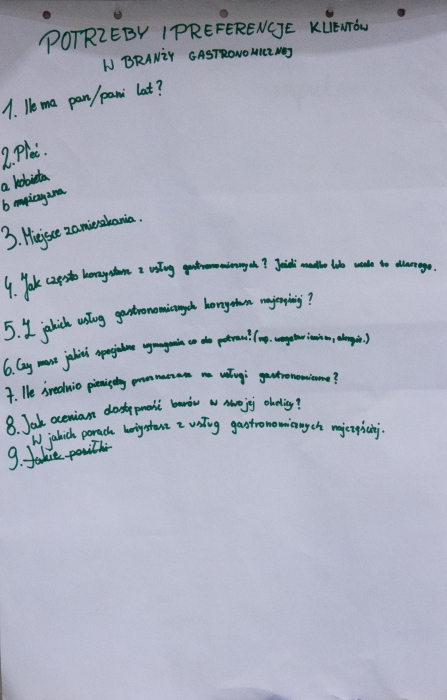 POTRZEBY I PREFERENCJE KLIENTÓW
W BRANŻY GASTRONOMICZNEJ
1. Ile ma pan/pani lat?
2. Płeć.
a kobieta
b mężczyzna
3. Miejsce zamieszkania.
4. Jak często korzystasz z usług gastronomicznych? Jeżeli rzadko lub wcale to dlaczego.
5. Z jakich usług gastronomicznych korzystasz najczęściej?
6. Czy masz jakieś specjalne wymagania co do potraw? (np. wegetarianizm, alergie.)
7. Ile średnio pieniędzy przeznaczasz na usługi gastronomiczne?
8. Jak oceniasz dostępność barów w swojej okolicy?
W jakich porach korzystasz z usług gastronomicznych najczęściej.
9. Jakie posiłki